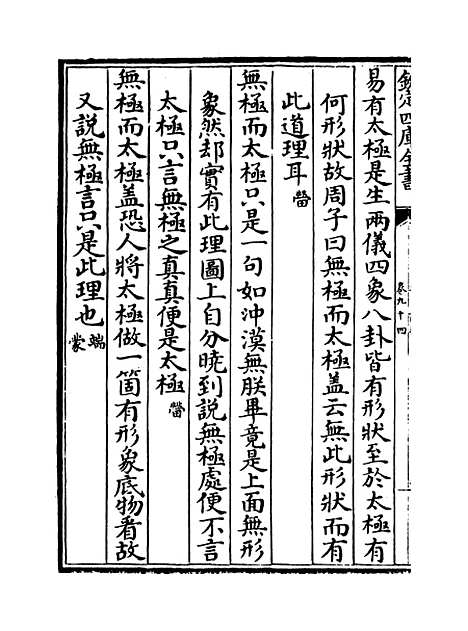 欽定四庫全書
卷九十四
易有太極是生兩儀四象八卦皆有形狀至於太極有
何形狀故周子曰無極而太極盖云無此形狀而有
此道理耳㽦
無極而太極只是一句如沖漠無朕畢竟是上面無形
象然却實有此理圖上自分曉到說無極處便不言
太極只言無極之真真便是太極㽦
無極而太極盖恐人將太極做一箇有形象底物㸔故
又說無極言只是此理也端蒙